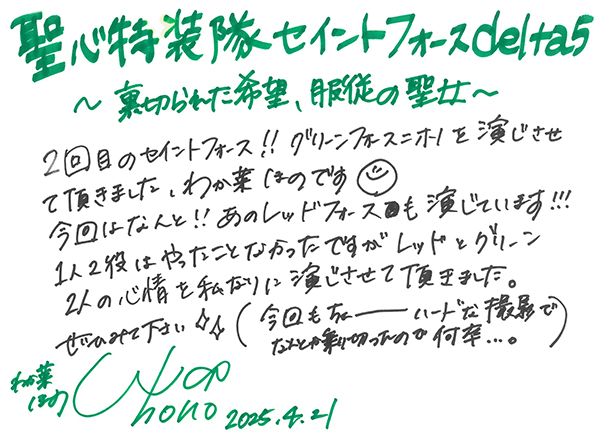 聖心特装隊セイントフォースdelta5
～裏切られた希望、服従の聖女～
2回目のセイントフォース!! グリーンフォースニホノを演じさせ
て頂きました、わか葉ほのです☺
今回はなんと!! あのレッドフォースも演じています!!!
1人2役はやったことなかったですがレッドとグリーン
2人の心情を私なりに演じさせて頂きました。
ぜひみて下さい✧✧（今回もちょーーーハードな撮影で
なんとか乗り切ったので何卒…。）
わか葉
ほの
hono 2025.4.21